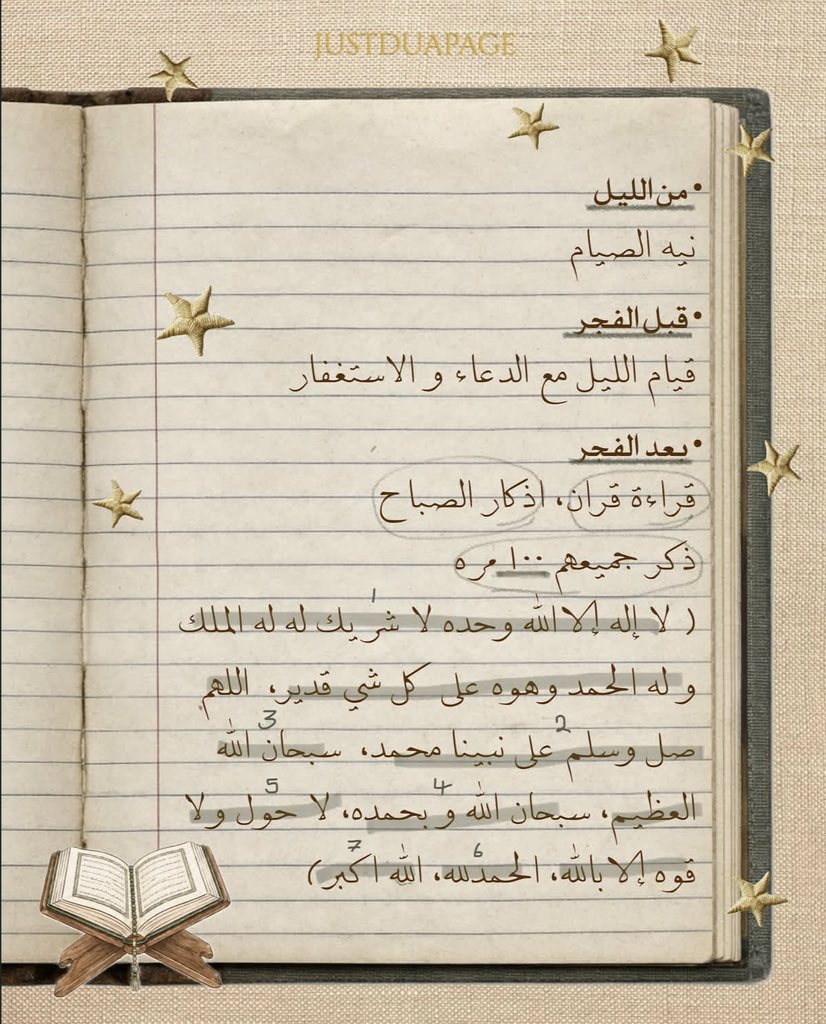 JUSTDUAPAGE
•من الليل
نيه الصيام
•قبل الفجر
قيام الليل مع الدعاء و الاستغفار
•بعد الفجر
قراءة قران، اذكار الصباح
ذكر جميعهم ١٠٠ مره
1
( لا إله إلا الله وحده لا شريك له له الملك
و له الحمد وهوه على كل شي قدير، اللهم
2 3
صل وسلم على نبينا محمد، سبحان الله
4 5
العظيم، سبحان الله و بحمده، لا حول ولا
6 7
قوه إلا بالله، الحمدلله، الله اكبر)